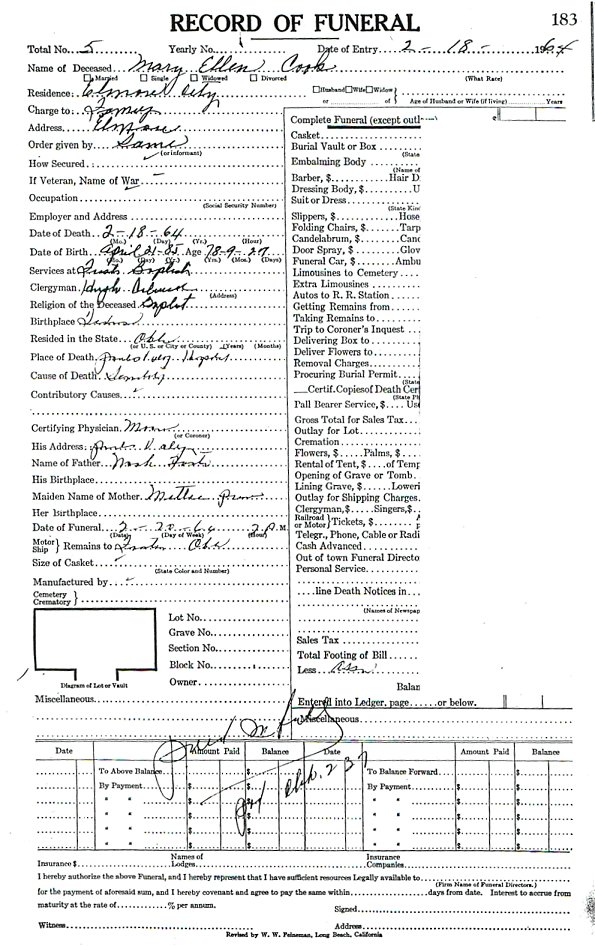 RECORD OF FUNERAL 183
Total No. 5 Yearly No. Date of Entry 2-18- 1964
Name of Deceased Mary Ellen Cook
Married Single Widowed Divorced (What Rate)
Residence: Elmore City Husband Wife Widow
or of Age of Husband or Wife (if living) Years
Charge to: Family
Address Elmore
Order given by Same
(or informant)
How Secured
If Veteran, Name of War
Occupation
(Social Security Number)
Employer and Address
Date of Death 2-18-64
(Mo.) (Day) (Yr.) (Hour)
Date of Birth April 21-85 Age 78-9-27
(Mo.) (Day) (Yr.) (Yrs.) (Mon.) (Days)
Services at First Baptist
Clergyman Hugh
(Address)
Religion of the Deceased Baptist
Birthplace
Resided in the State Okla
(or U. S. or City or County) (Years) (Months)
Place of Death Pauls Valley Hospital
Cause of Death
Contributory Causes
Certifying Physician
(or Coroner)
His Address Pauls Valley
Name of Father
His Birthplace
Maiden Name of Mother Mattie
Her Birthplace
Date of Funeral 2-20-64 2 P.M.
(Date) (Day of Week) (Hour)
Motor Ship Remains to Okla
Size of Casket
(State Color and Number)
Manufactured by
Cemetery
Crematory
Lot No.
Grave No.
Section No.
Block No.
Owner
Diagram of Lot or Vault
Miscellaneous
Complete Funeral (except outl
Casket
Burial Vault or Box
(State
Embalming Body
(Name of
Barber, $ Hair D
Dressing Body, $ U
Suit or Dress
(State Kind
Slippers, $ Hose
Folding Chairs, $ Tarp
Candelabrum, $ Canc
Door Spray, $ Glov
Funeral Car, $ Ambu
Limousines to Cemetery
Extra Limousines
Autos to R. R. Station
Getting Remains from
Taking Remains to
Trip to Coroner's Inquest
Delivering Box to
Deliver Flowers to
Removal Charges
Procuring Burial Permit
(State
Certif. Copies of Death Cer
(State Pl
Pall Bearer Service, $ Us
Gross Total for Sales Tax
Outlay for Lot
Cremation
Flowers, $ Palms, $
Rental of Tent, $ of Temp
Opening of Grave or Tomb
Lining Grave, $ Loweri
Outlay for Shipping Charges
Clergyman, $ Singers, $
Railroad or Motor Tickets, $
Telegr., Phone, Cable or Radi
Cash Advanced
Out of town Funeral Directo
Personal Service
line Death Notices in
(Names of Newspap
Sales Tax
Total Footing of Bill
Less
Balan
Entered into Ledger, page or below.
Miscellaneous
Date Amount Paid Balance Date Amount Paid Balance
To Above Balance $ To Balance Forward $
By Payment $ By Payment $
" " $ " " $
" " $ " " $
" " $ " " $
" " $ " " $
Insurance $ Names of Lodges Insurance Companies
I hereby authorize the above Funeral, and I hereby represent that I have sufficient resources Legally available to
(Firm Name of Funeral Directors.)
for the payment of aforesaid sum, and I hereby covenant and agree to pay the same within days from date. Interest to accrue from
maturity at the rate of % per annum. Signed
Witness Address
Revised by W. W. Feineman, Long Beach, California